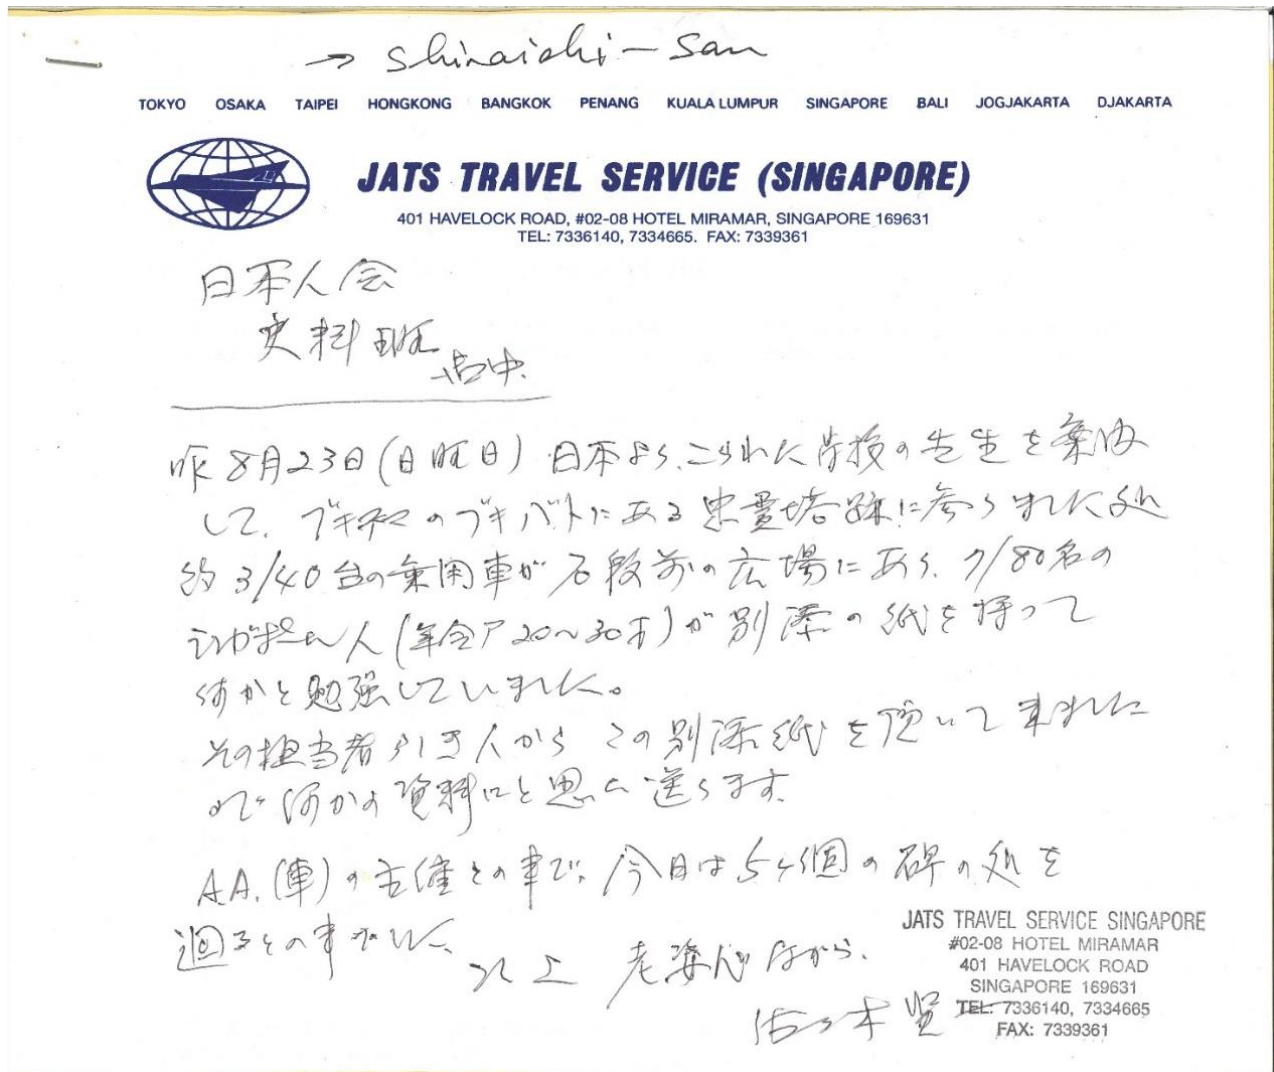 → Shiraichi-San
TOKYO OSAKA TAIPEI HONGKONG BANGKOK PENANG KUALA LUMPUR SINGAPORE BALI JOGJAKARTA DJAKARTA
JATS TRAVEL SERVICE (SINGAPORE)
401 HAVELOCK ROAD, #02-08 HOTEL MIRAMAR, SINGAPORE 169631
TEL: 7336140, 7334665. FAX: 7339361
日本人会
史料班
御中.
昨8月23日(日曜日)日本より、こられた学校の先生を案内
して、ブキテマのブキバトにある忠霊塔跡に参られた処
約3/40台の乗用車が石段前の広場にあり、7/80名の
シンガポール人(年令ハ20〜30才)が別添の紙を持って
何かと勉強していました。
その担当者引き人からこの別添紙を頂いて来ました
ので何かの資料にと思い送ります。
A.A.(車)の主催との事で、今日は5ヶ個の碑の処を
廻るとの事でした、
以上 老婆心ながら、
佐々木 賢
JATS TRAVEL SERVICE SINGAPORE
#02-08 HOTEL MIRAMAR
401 HAVELOCK ROAD
SINGAPORE 169631
TEL: 7336140, 7334665
FAX: 7339361